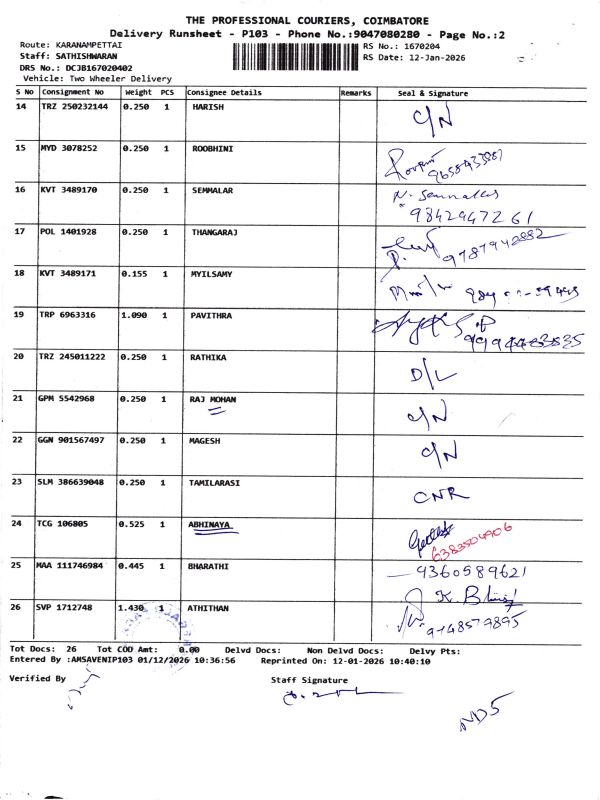 THE PROFESSIONAL COURIERS, COIMBATORE
Delivery Runsheet - P103 - Phone No.:9047080280 - Page No.:2
Route: KARANAMPETTAI
RS No.: 1670204
Staff: SATHISHWARAN
RS Date: 12-Jan-2026
DRS No.: DCJB167020402
Vehicle: Two Wheeler Delivery
S No Consignment No Weight PCS Consignee Details Remarks Seal & Signature
14 TRZ 250232144 0.250 1 HARISH C/N
15 MYD 3078252 0.250 1 ROOBHINI
16 KVT 3489170 0.250 1 SEMMALAR 9842947261
17 POL 1401928 0.250 1 THANGARAJ 9787942882
18 KVT 3489171 0.155 1 MYILSAMY
19 TRP 6963316 1.090 1 PAVITHRA
20 TRZ 245011222 0.250 1 RATHIKA D/L
21 GPM 5542968 0.250 1 RAJ MOHAN C/N
22 GGN 901567497 0.250 1 MAGESH C/N
23 SLM 386639048 0.250 1 TAMILARASI CNR
24 TCG 106805 0.525 1 ABHINAYA 6383504906
25 MAA 111746984 0.445 1 BHARATHI 9360589621
26 SVP 1712748 1.430 1 ATHITHAN
Tot Docs: 26 Tot COD Amt: 0.00 Delvd Docs: Non Delvd Docs: Delvy Pts:
Entered By :AMSAVENIP103 01/12/2026 10:36:56 Reprinted On: 12-01-2026 10:40:10
Verified By Staff Signature